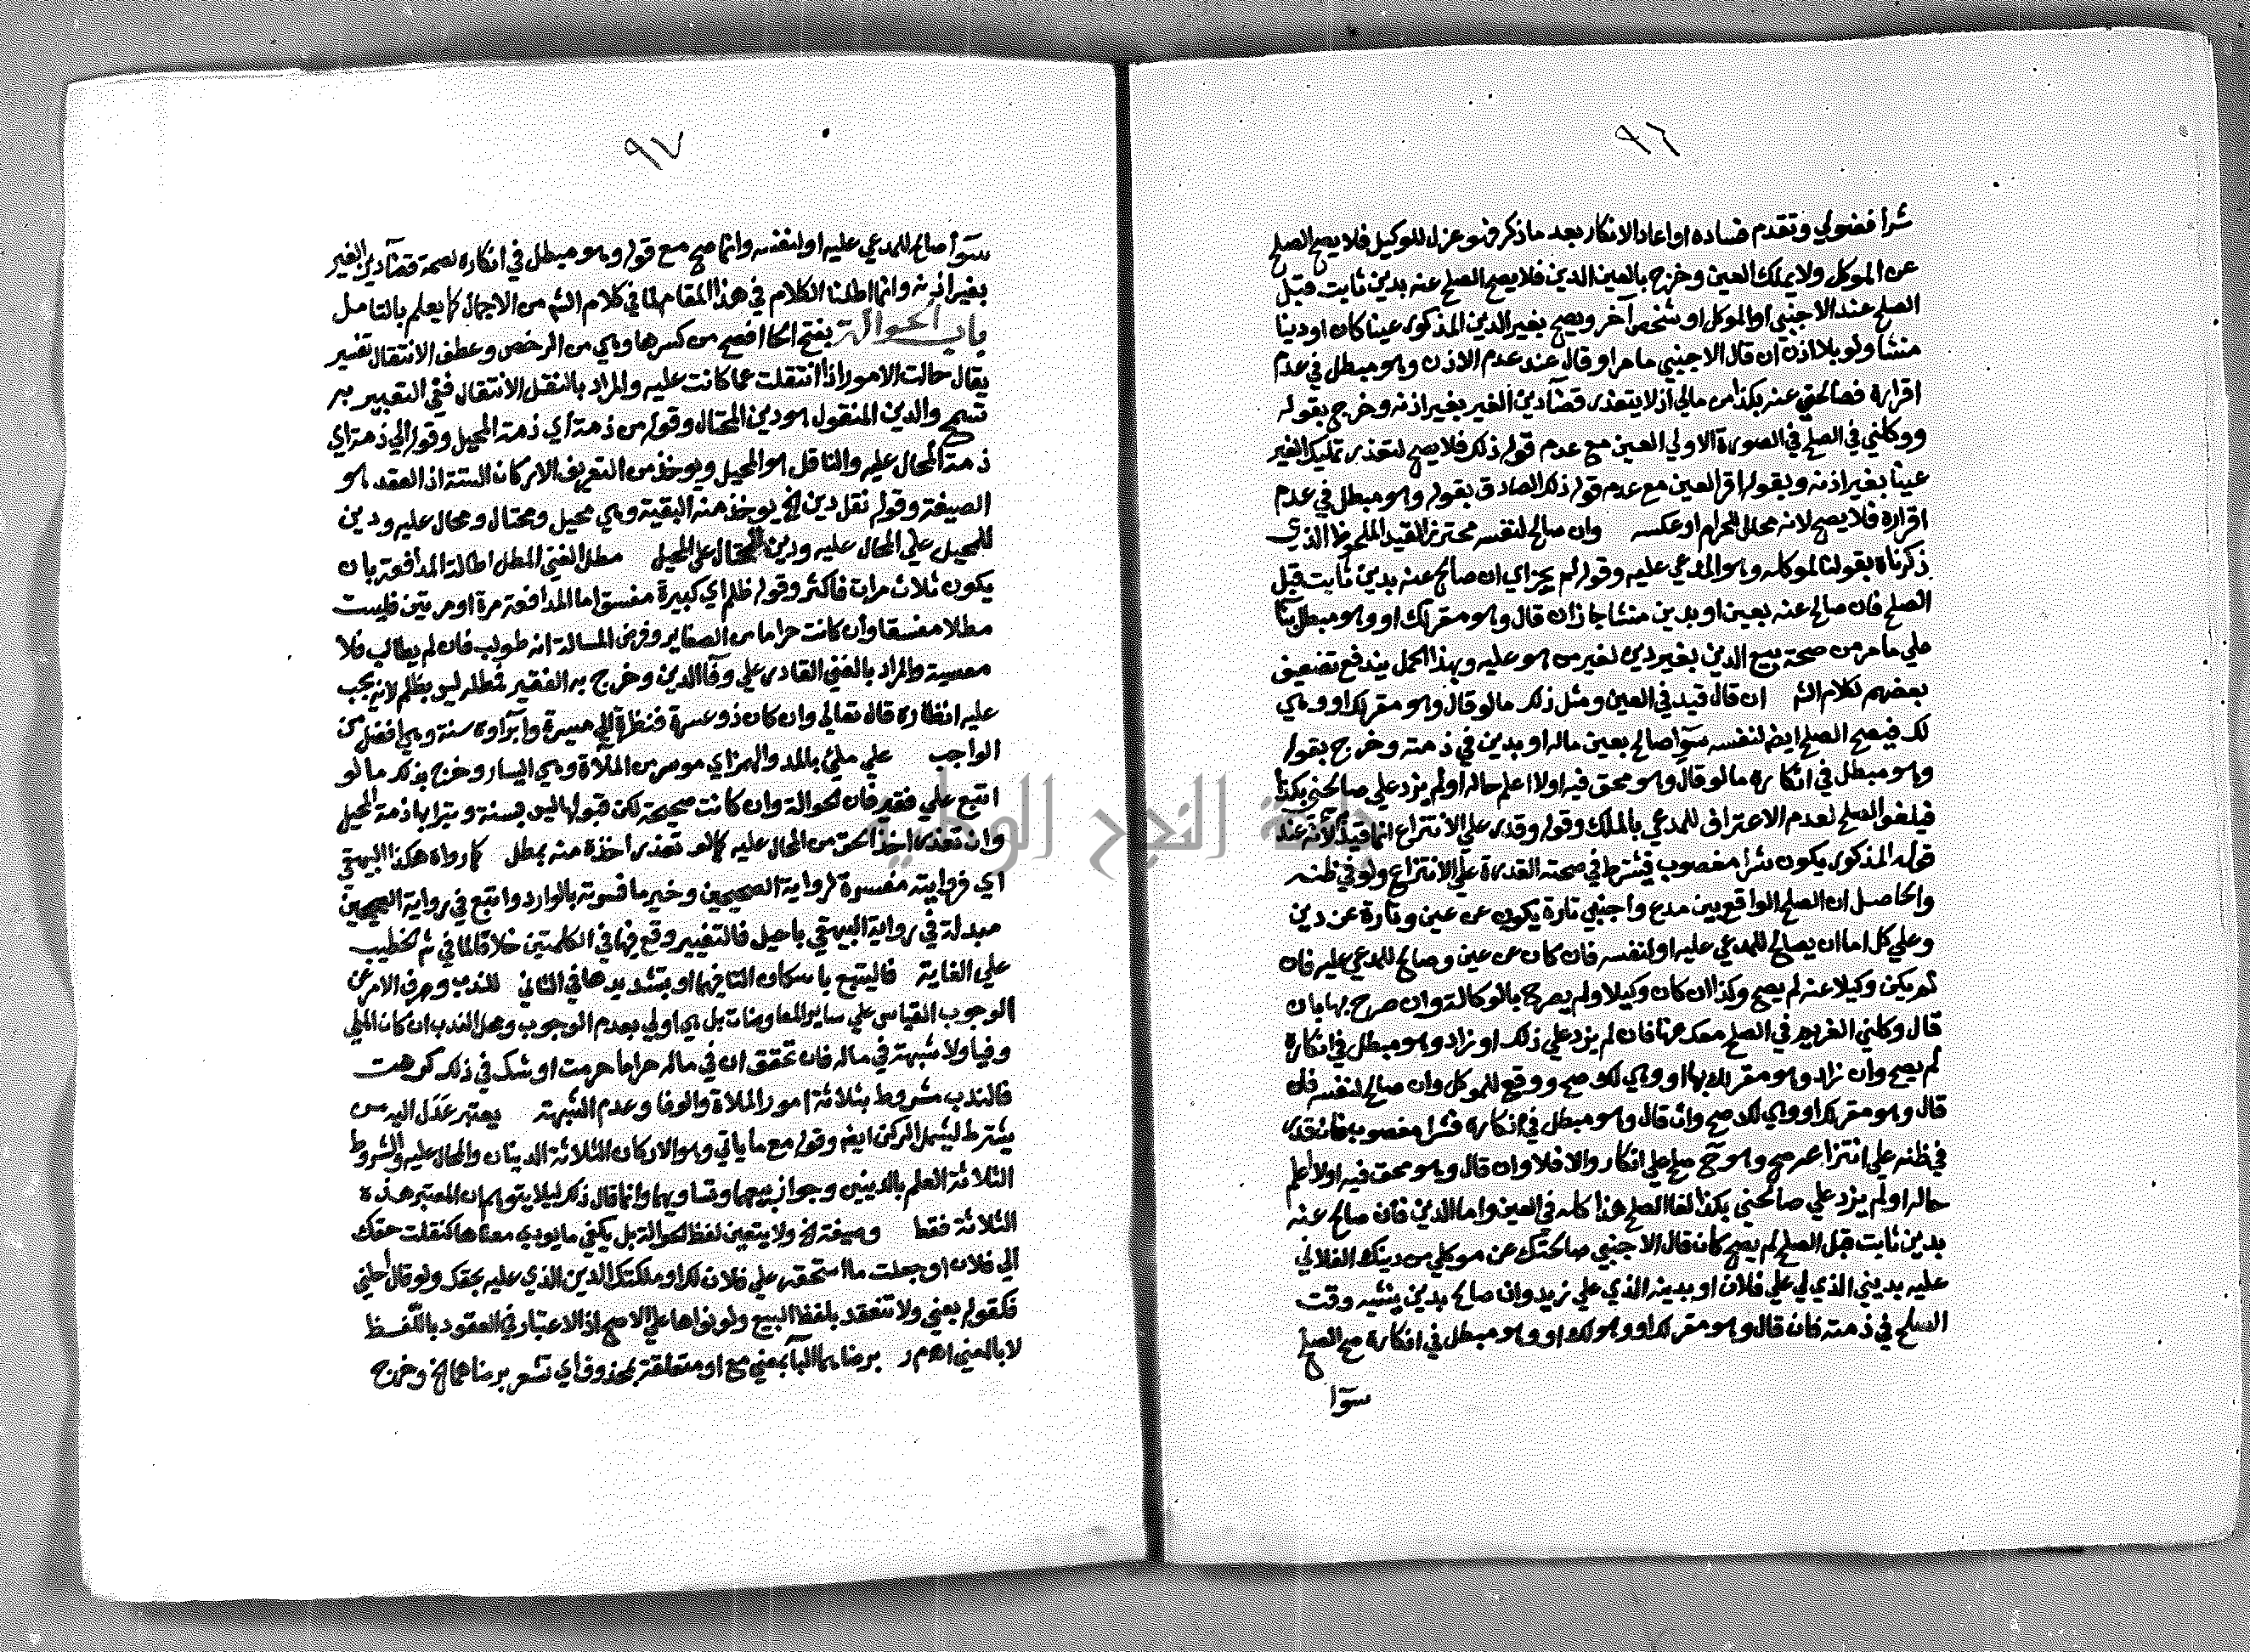 ٩٦
شرا فضولي وتقدم فساده او اعاد الانكار بعد ما ذكر فهو عزل للوكيل فلا يصح الصلح
عن الموكل ولا يملك العين وخرج بالعين الدين فلا يصح الصلح عنه بدين ثابت قبل
الصلح عند الاجنبي او الموكل او شخص آخر ويصح بغير الدين المذكور عينا كان او دينا
منشا ولو بلا اذن ان قال الاجنبي ما مر او قال عند عدم الاذن وهو مبطل في عدم
اقراره فصالحني عنه بكذا من مالي اذ لا يتعذر قضآ دين الغير بغير اذنه وخرج بقوله
ووكلني في الصلح في الصورة الاولي العين مع عدم قوله ذلك فلا يصح لتعذر تمليك الغير
عينا بغير اذنه وبقوله اقر العين مع عدم قوله ذلك الصادق بقوله وهو مبطل في عدم
اقراره فلا يصح لانه محلل للحرام او عكسه وان صالح لنفسه محترز القيد الملحوظ الذي
ذكرناه بقولنا لموكله وهو المدعي عليه وقوله لم يجز اي ان صالح عنه بدين ثابت قبل
الصلح فان صالح عنه بعين او بدين منشا جاز ان قال وهو مقر لك او وهو مبطل بنا
علي ما مر من صحة بيع الدين بغير دين لغير من هو عليه وبهذا الحمل يندفع تضعيف
بعضهم لكلام الشه ان قال قيد في العين ومثل ذلك ما لو قال وهو مقر لك او وهي
لك فيصح الصلح ايضا لنفسه سوآ صالح بعين ماله او بدين في ذمته وخرج بقوله
وهو مبطل في انكاره ما لو قال وهو محق فيه او لا اعلم حاله او لم يزد علي صالحني بكذا
فيلغو الصلح لعدم الاعتراف للمدعي بالملك وقوله وقدر علي الانتزاع انما قيد لانه عند
قوله المذكور يكون شرا مغصوب فيشترط في صحته القدرة علي الانتزاع ولو في ظنه
والحاصل ان الصلح الواقع بين مدع واجنبي تارة يكون عن عين وتارة عن دين
وعلي كل اما ان يصالح للمدعي عليه او لنفسه فان كان عن عين وصالح للمدعي عليه فان
لم يكن وكيلا عنه لم يصح وكذا ان كان وكيلا ولم يصرح بالوكالة وان صرح بها بان
قال وكلني الغريم في الصلح معك عنها فان لم يزد علي ذلك او زاد وهو مبطل في انكاره
لم يصح وان زاد وهو مقر لك بها او وهي لك صح ووقع للموكل وان صالح لنفسه فان
قال وهو مقر لك او وهي لك صح وان قال وهو مبطل في انكاره فشرا مغصوب فان قدر
في ظنه علي انتزاعه صح وهو صلح علي انكار والا فلا وان قال وهو محق فيه او لا اعلم
حاله او لم يزد علي صالحني بكذا لغا الصلح هذا كله في العين واما الدين فان صالح عنه
بدين ثابت قبل الصلح لم يصح كان قال الاجنبي صالحتك عن موكلي من دينك الفلاني
عليه بديني الذي لي علي فلان او بدينه الذي علي زيد وان صالح بدين ينشيه وقت
الصلح في ذمته فان قال وهو مقر لك او وهو لك او وهو مبطل في انكاره صح الصلح
سوآ
٩٧
سوآ صالح للمدعي عليه او لنفسه وانما صح مع قوله وهو مبطل في انكاره لصحة قضآ دين الغير
بغير اذنه وانما اطلنا الكلام في هذا المقام لما في كلام الشه من الاجمال كما يعلم بالتامل
باب الحوالة بفتح الحا افصح من كسرها وهي من الرخص وعطف الانتقال تفسير
يقال حالت الامور اذا انتقلت عما كانت عليه والمراد بالنقل الانتقال ففي التعبير به
تسمح والدين المنقول هو دين المحتال وقوله من ذمة اي ذمة المحيل وقوله الي ذمة اي
ذمة المحال عليه والناقل هو المحيل ويوخذ من التعريف الاركان الستة اذ العقد هو
الصيغة وقوله نقل دين الخ يوخذ منه البقية وهي محيل ومحتال ومحال عليه ودين
للمحيل علي المحال عليه ودين للمحتال علي المحيل مطل الغني المطل اطالة المدافعة بان
يكون ثلاث مرات فاكثر وقوله ظلم اي كبيرة مفسق اما المدافعة مرة او مرتين فليست
مطلا مفسقا وان كانت حراما من الصغاير وفرض المسالة انه طولب فان لم يطالب فلا
معصية والمراد بالغني القادر علي وفا الدين وخرج به الفقير فمطله ليس بظلم لانه يجب
عليه انظاره قال تعالي وان كان ذو عسرة فنظرة الي ميسرة وابرآوه سنة وهي افضل من
الواجب علي ملئ بالمد والهمز اي موسر من الملآة وهي اليسار وخرج بذلك ما لو
اتبع علي فقير فان الحوالة وان كانت صحيحة لكن قبولها ليس بسنة ويبرا بها ذمة المحيل
وان تعذر اخذ الحق من المحال عليه كما لو تعذر اخذه منه بمطل كما رواه هكذا البيهقي
اي فروايته مفسرة لرواية الصحيحين وخير ما فسرته بالوارد واتبع في رواية الصحيحين
مبدلة في رواية البيهقي باحيل فالتغيير وقع فيها في الكلمتين خلافا لما في شه الخطيب
علي الغاية فاليتبع باسكان التا فيهما او بتشديدها في الثاني للندب وصرف الامر عن
الوجوب القياس علي ساير المعاوضات بل هي اولي بعدم الوجوب ومحل الندب ان كان الملي
وفيا ولا شبهة في ماله فان تحقق ان في ماله حراما حرمت او شك في ذلك كرهت
فالندب مشروط بثلاثة امور الملاة والوفا وعدم الشبهة يعتبر عدل اليه من
يشترط ليشمل الركن ايضا وقوله مع ما ياتي وهو الاركان الثلاثة الدينان والمحال عليه والشروط
الثلاثة العلم بالدينين وجواز بيعهما وتساويهما وانما قال ذلك ليلا يتوهم ان المعتبر هذه
الثلاثة فقط وصيغة الخ ولا يتعين لفظ الحوالة بل يكفي ما يودي معناها كنقلت حقك
الي فلان او جعلت ما استحقه علي فلان لك او ملكتك الدين الذي عليه بحقك ولو قال احلني
فكقوله بعني ولا تنعقد بلفظ البيع ولو نواها علي الاصح اذ الاعتبار في العقود باللفظ
لا بالمعني اه م ر برضاهما البآ بمعني مع او متعلقة بمحذوف اي تشعر برضاهما الخ وخرج